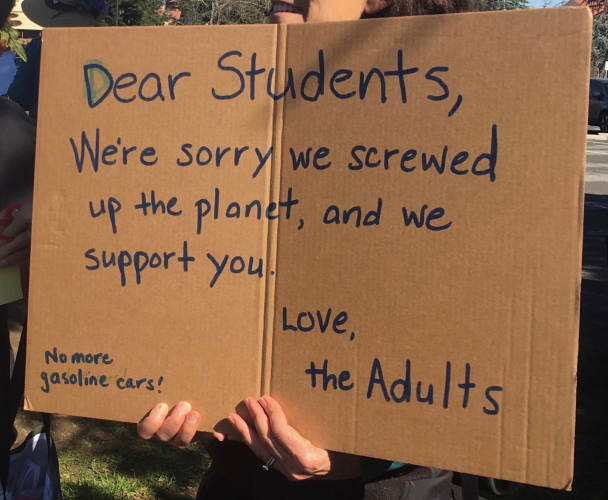 Dear Students,
We're sorry we screwed
up the planet, and we
support you.
Love,
the Adults
No more
gasoline cars!